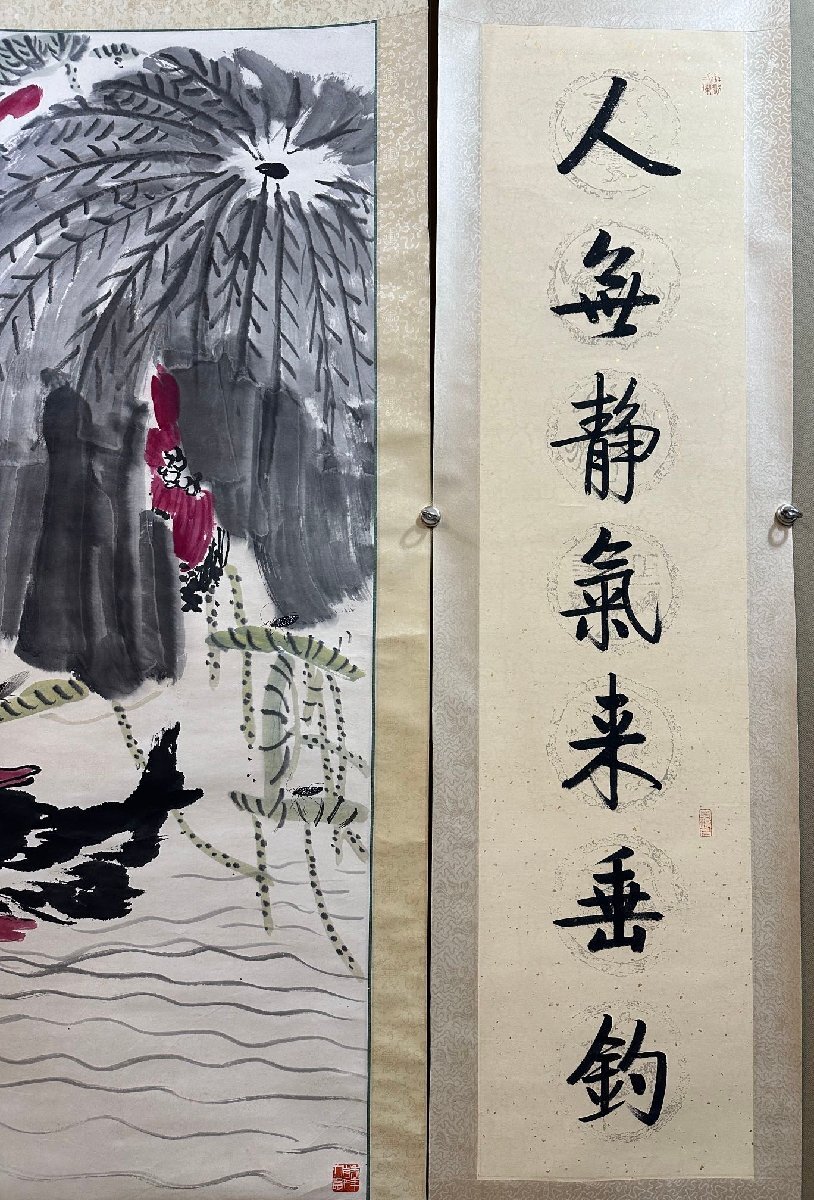 人無静氣来垂釣